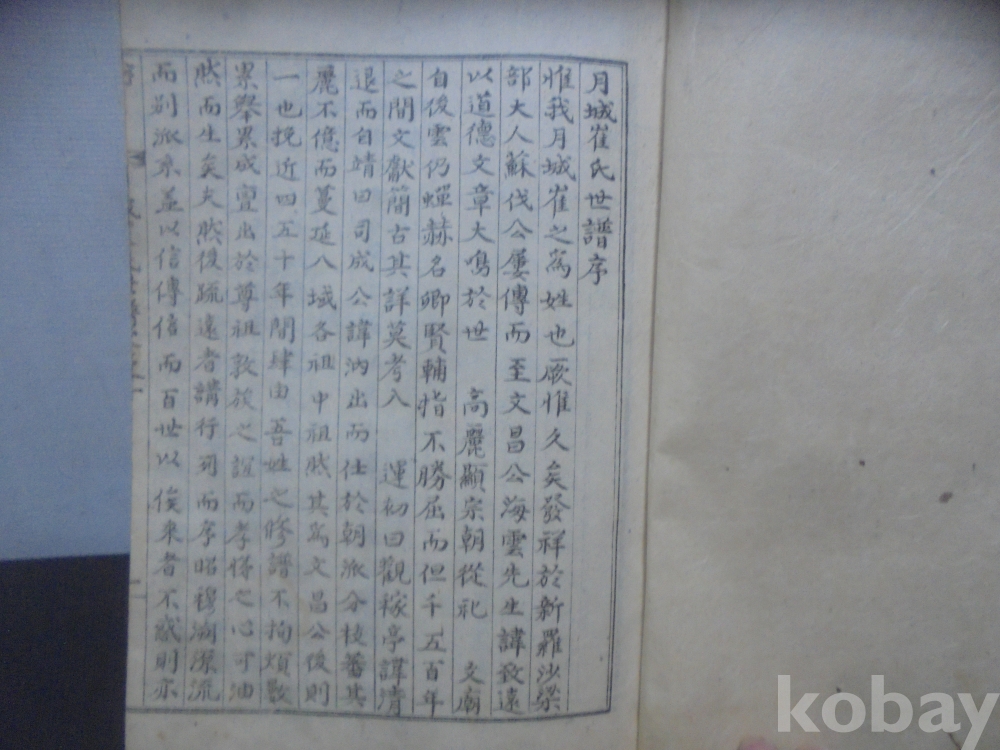 月城崔氏世譜序
惟我月城崔之爲姓也厥惟久矣發祥於新羅沙梁
部大人蘇伐公屢傳而至文昌公海雲先生諱致遠
以道德文章大鳴於世 高麗顯宗朝從祀 文廟
自後雲仍蟬赫名卿賢輔指不勝屈而但千五百年
之間文獻簡古其詳莫考入 運初曰觀稼亭諱清
退而自靖曰司成公諱汭出而仕於朝派分枝蕃其
麗不億而蔓延八域各祖中祖然其爲文昌公後則
一也挽近四五十年間肆由吾姓之修譜不拘煩數
累擧累成亶出於尊祖敦族之誼而孝悌之心可油
然而生矣夫然後疏遠者講行列而序昭穆溯源流
而別派系盖以信傳信而百世以俟來者不惑則亦
kobay